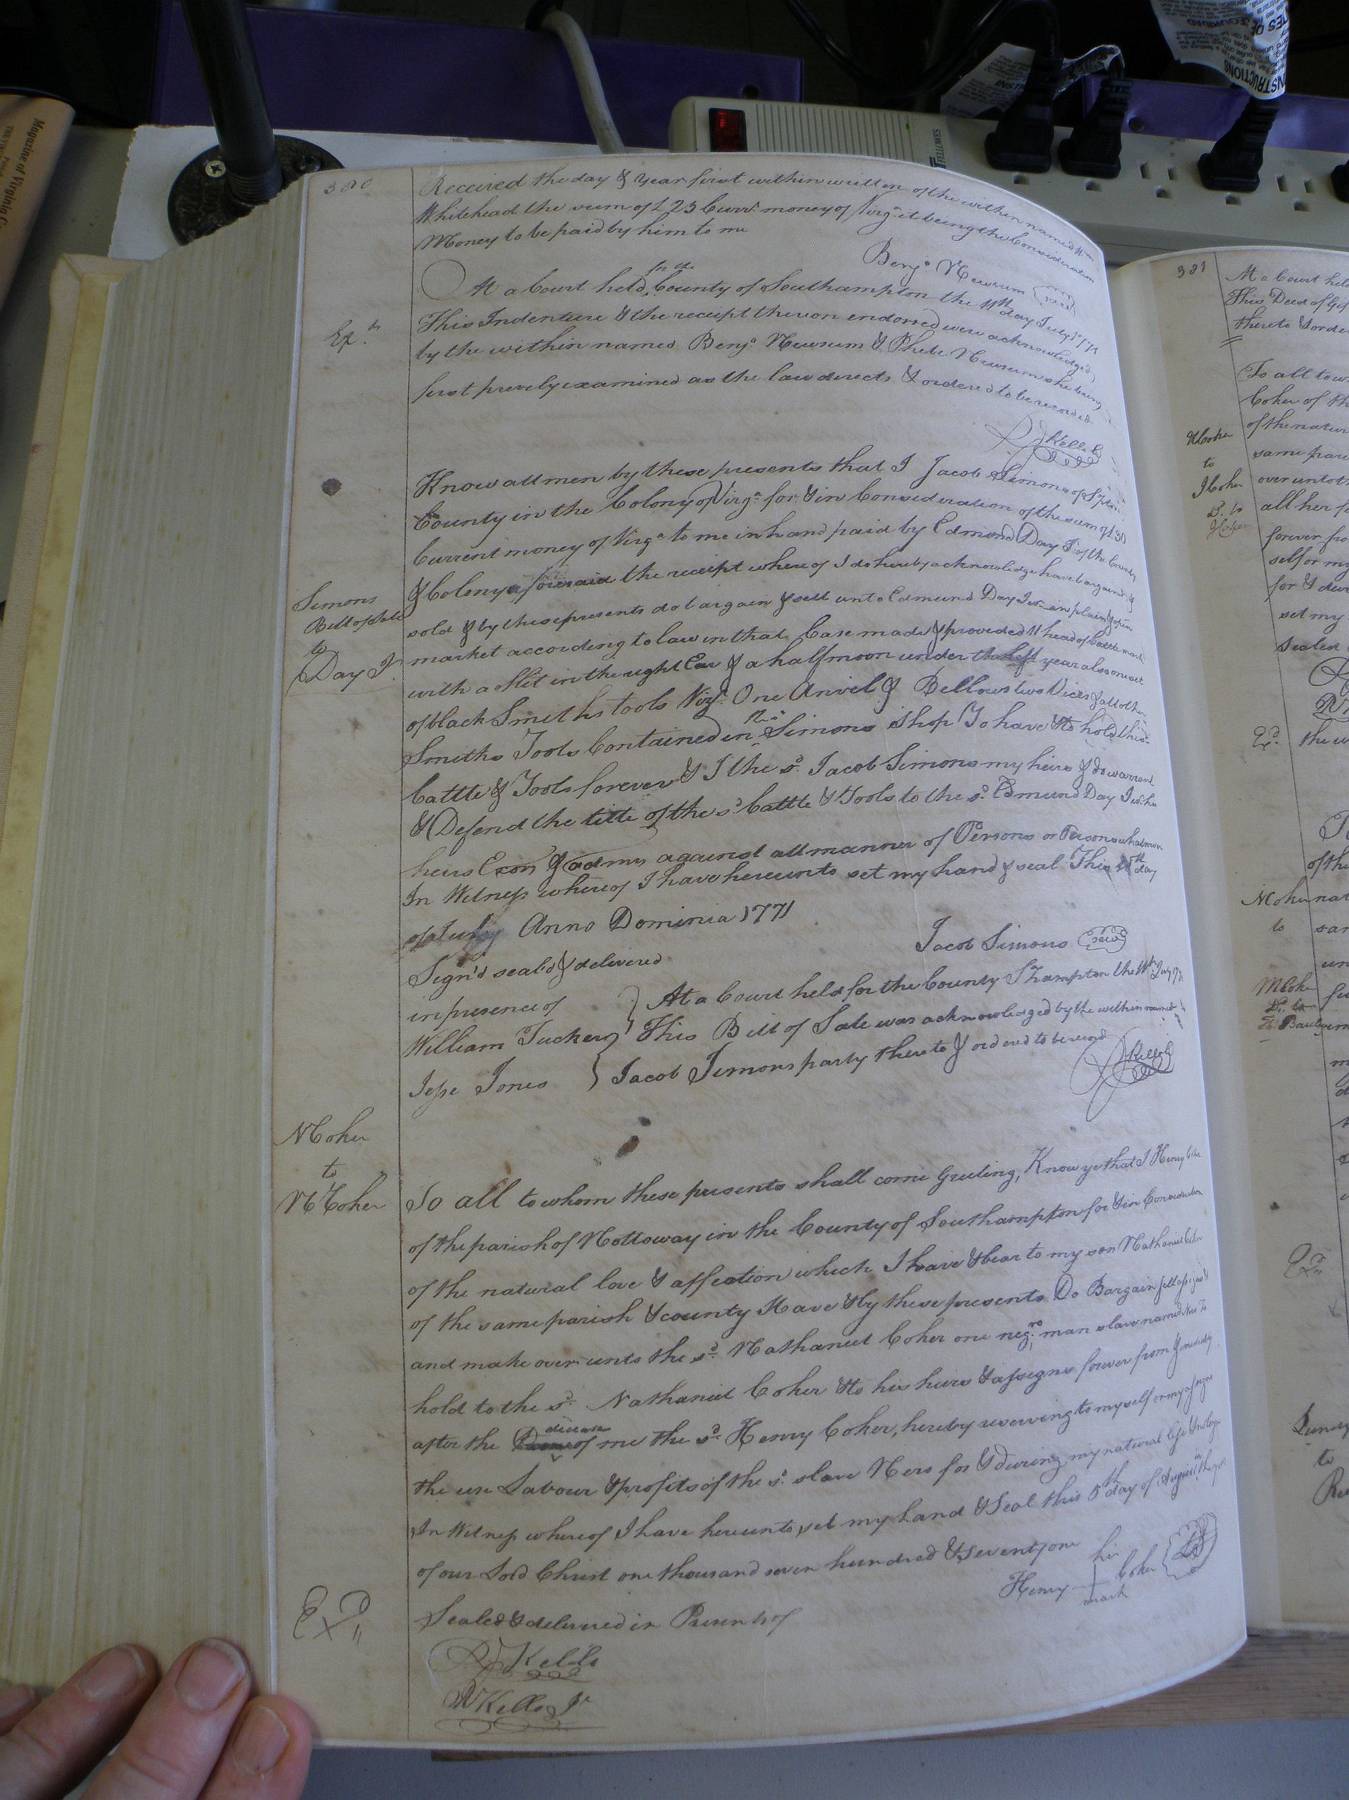 380
Received the day & Year first within written of the within named Wm
Whitehead the sum of £23 Curr. money of Virga it being the Consideration
Money to be paid by him to me
Benja Newsum
At a Court held for the County of Southampton the 11th day July 1771
Exd
This Indenture & the receipt thereon endorsed were acknowledged
by the within named Benja Newsum & Phebe Newsum she being
first prively examined as the law directs & ordered to be recorded
R Kello
Know all men by these presents that I Jacob Simons of
County in the Colony of Virga for & in Consideration of the sum of £30
Current money of Virga to me in hand paid by Edmond Day Jr of the County
& Colony aforesaid the receipt where of I do hereby acknowledge have bargained &
Simons
Bill of Sale
to
Day Jr
sold & by these presents do bargain & sell unto Edmund Day Junr in plain & open
market according to law in that Case made & provided 11 head of Cattle markt
with a slit in the right Ear & a halfmoon under the left year also one set
of black Smiths tools Viz. One Anvil & Bellows two Vices & all other
Smiths Tools Contained in the sd Simons shop To have & to hold this
Cattle & Tools forever & I the sd Jacob Simons my heirs & do warrant
& Defend the title of the sd Cattle & Tools to the sd Edmund Day Junr his
heirs Exors & admrs against all manner of Persons or Person whatsoever
In Witness whereof I have hereunto set my hand & seal This day
of July Anno Dominia 1771
Jacob Simons seal
Sign'd seal'd & delivered
in presence of
William Tucker
Jesse Jones
At a Court held for the County S hampton the 11th July 1771
This Bill of Sale was acknowledged by the within named
Jacob Simons party thereto & ordered to be record
R Kello
N Coker
to
N Coker
To all to whom these presents shall come Greeting, Know ye that I Henry Coker
of the parish of Nottoway in the County of Southampton for & in Consideration
of the natural love & affection which I have & bear to my son Nathaniel Coker
of the same parish & county Have & by these presents Do Bargain sell assign
and make over unto the sd Nathaniel Coker one negro man slave named Nero To
hold to the sd Nathaniel Coker & to his heirs & assigns forever from & immediately
after the decease of me the sd Henry Coker, hereby reserving to myself or my assigns
the use Labour & profits of the sd slave Nero for & during my natural life &
In Witness whereof I have hereunto set my hand & Seal this 5th day of August in the year
of our Lord Christ one thousand seven hundred & seventy one
Henry his mark Coker LS
Exd
Sealed & delivered in Presents of
R Kello
R Kello Jr
381
At a Court held
This Deed of Gift
thereto & order
To all to w
Coker of th
of the natur
same paris
H Coker
to
J Coker
over unto th
all her f
forever fro
self or my
for & dur
set my
Sealed
Exd
the w
of the
nat
to
sam
M Coker
to
Magazine of Virginia
FELLOWES
INSTRUCTIONS